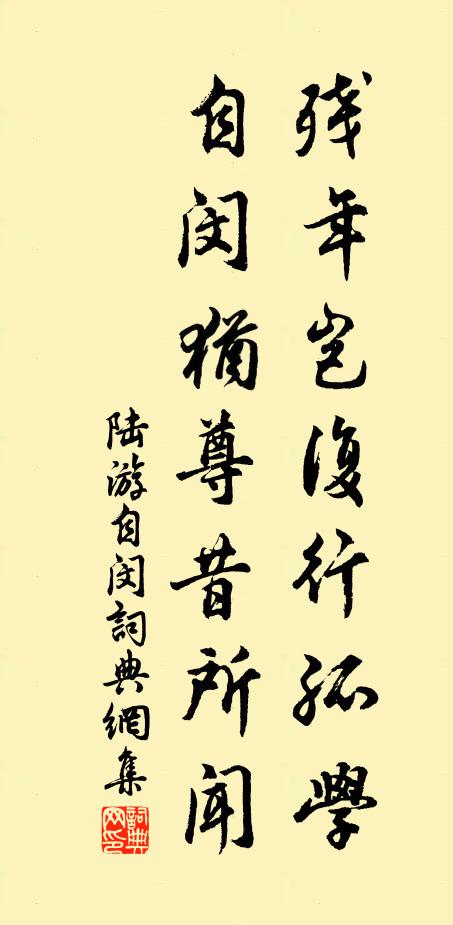 残年岂復行孤學
自闵猶尊昔所闻
陆游自闵詞典網集
詞典
网印